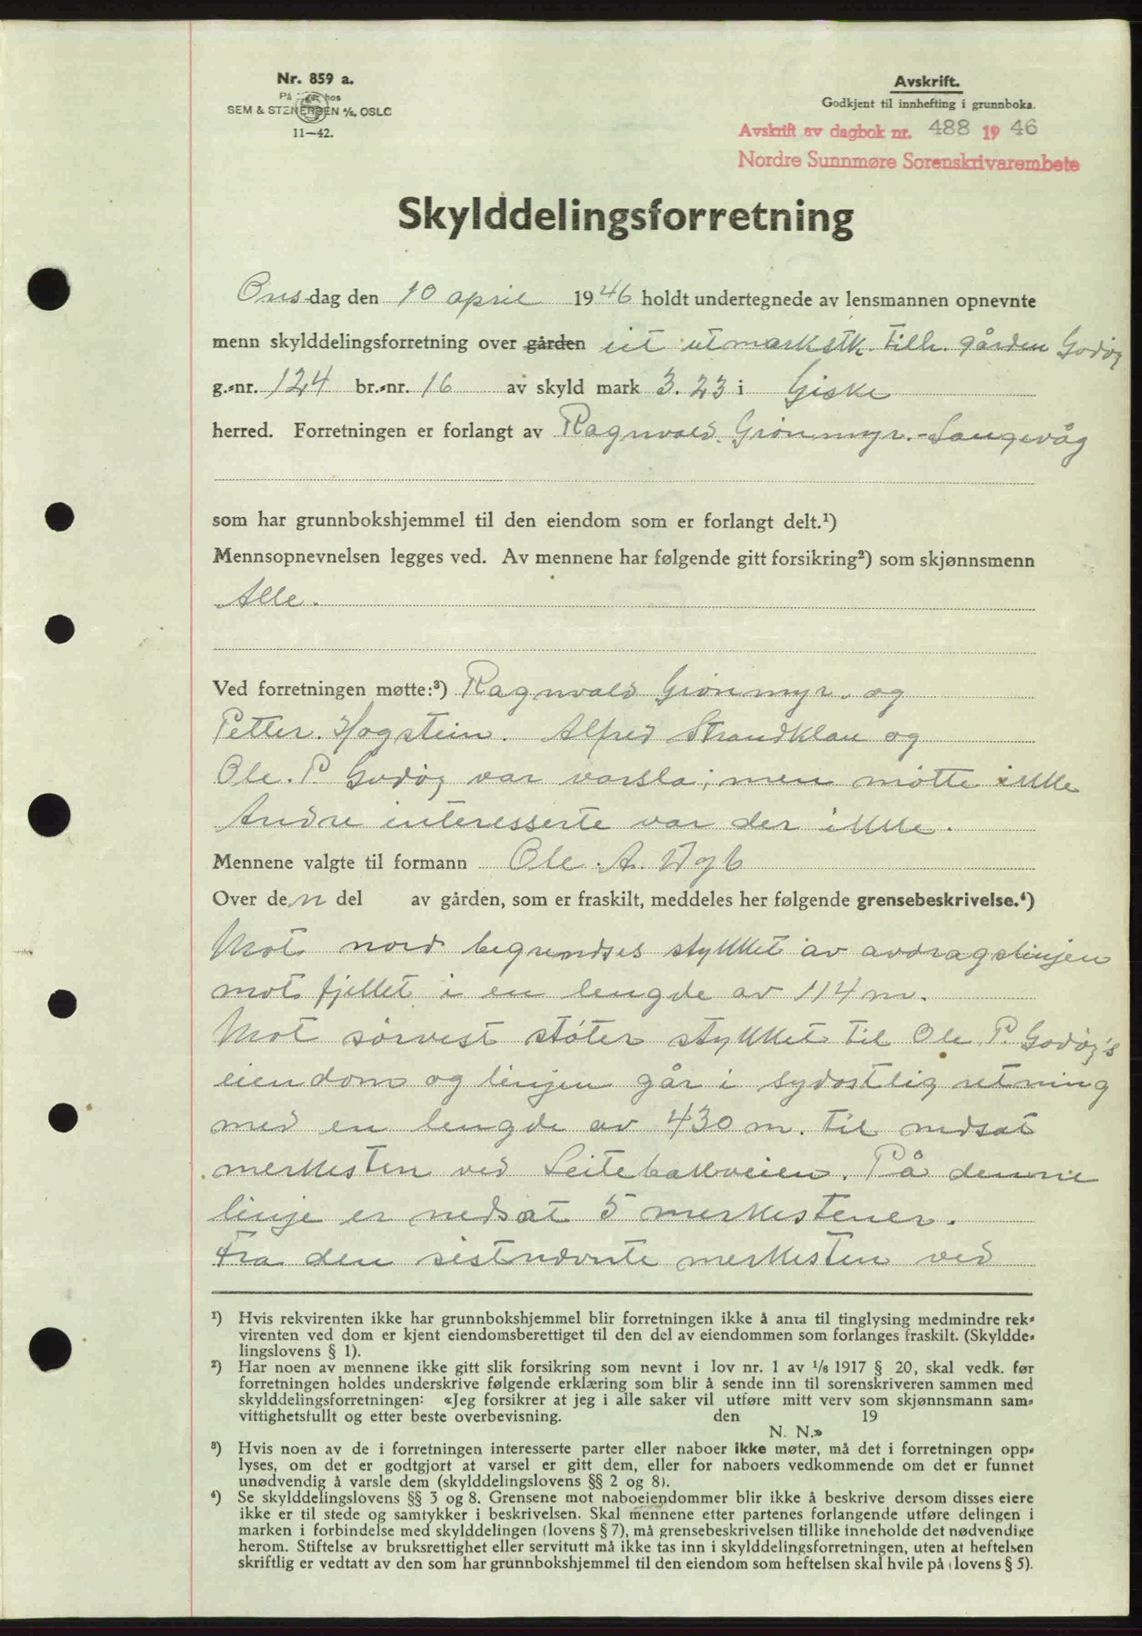 Nr. 859 a.
På lager hos
SEM & STENERSEN A/S, OSLO
11—42.
Avskrift.
Godkjent til innhefting i grunnboka.
Avskrift av dagbok nr. 488 1946
Nordre Sunnmøre Sorenskrivarembete
Skylddelingsforretning
Onsdag den 10 april 1946 holdt undertegnede av lensmannen opnevnte
menn skylddelingsforretning over gården eit utmarkstk. tilh. gården Godøy
g.-nr. 124 br.-nr. 16 av skyld mark 3.23 i Giske
herred. Forretningen er forlangt av Ragnvald Grønmyr.-Langevåg
som har grunnbokshjemmel til den eiendom som er forlangt delt.¹)
Mennsopnevnelsen legges ved. Av mennene har følgende gitt forsikring²) som skjønnsmenn
Alle.
Ved forretningen møtte:³) Ragnvald Grønmyr. og
Petter. Hogstein. Alfred Strandklau og
Ole. P. Godøy var varsla; men møtte ikke
Andre interesserte var der ikke.
Mennene valgte til formann Ole. A.
Over den del av gården, som er fraskilt, meddeles her følgende grensebeskrivelse.⁴)
Mot nord begrendses stykket av avdragslinjen
mot fjellet i en lengde av 114 m.
Mot sørvest støter stykket til Ole P. Godøy's
eiendom og linjen går i sydostlig retning
med en lengde av 430 m. til nedsat
merkesten ved Leitebakveien. På denne
linje er nedsat 5 merkestener.
Fra den sistnevnte merkesten ved
¹) Hvis rekvirenten ikke har grunnbokshjemmel blir forretningen ikke å anta til tinglysing medmindre rek-
virenten ved dom er kjent eiendomsberettiget til den del av eiendommen som forlanges fraskilt. (Skyldde-
lingslovens § 1).
²) Har noen av mennene ikke gitt slik forsikring som nevnt i lov nr. 1 av 1/6 1917 § 20, skal vedk. før
forretningen holdes underskrive følgende erklæring som blir å sende inn til sorenskriveren sammen med
skylddelingsforretningen: «Jeg forsikrer at jeg i alle saker vil utføre mitt verv som skjønnsmann sam-
vittighetsfullt og etter beste overbevisning. den 19
N. N.»
³) Hvis noen av de i forretningen interesserte parter eller naboer ikke møter, må det i forretningen opp-
lyses, om det er godtgjort at varsel er gitt dem, eller for naboers vedkommende om det er funnet
unødvendig å varsle dem (skylddelingslovens §§ 2 og 8).
⁴) Se skylddelingslovens §§ 3 og 8. Grensene mot naboeiendommer blir ikke å beskrive dersom disses eiere
ikke er til stede og samtykker i beskrivelsen. Skal mennene etter partenes forlangende utføre delingen i
marken i forbindelse med skylddelingen (lovens § 7), må grensebeskrivelsen tillike inneholde det nødvendige
herom. Stiftelse av bruksrettighet eller servitutt må ikke tas inn i skylddelingsforretningen, uten at heftelsen
skriftlig er vedtatt av den som har grunnbokshjemmel til den eiendom som heftelsen skal hvile på (lovens § 5).